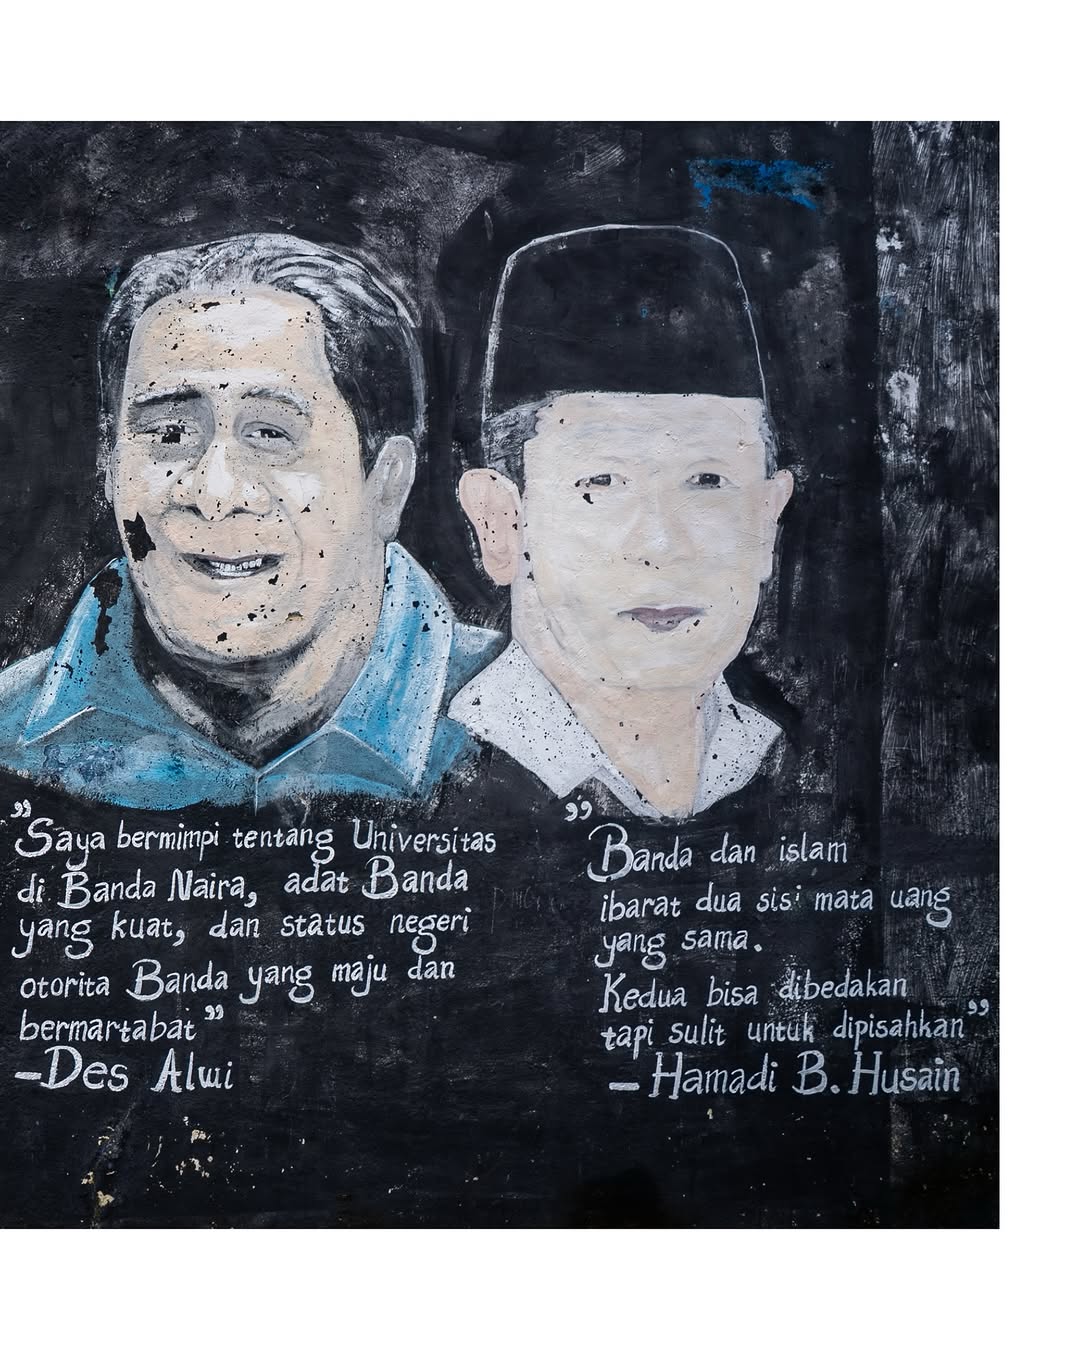 ”Saya bermimpi tentang Universitas
di Banda Naira, adat Banda
yang kuat, dan status negeri
otorita Banda yang maju dan
bermartabat”
–Des Alwi
”Banda dan islam
ibarat dua sisi mata uang
yang sama.
Kedua bisa dibedakan
tapi sulit untuk dipisahkan”
– Hamadi B. Husain